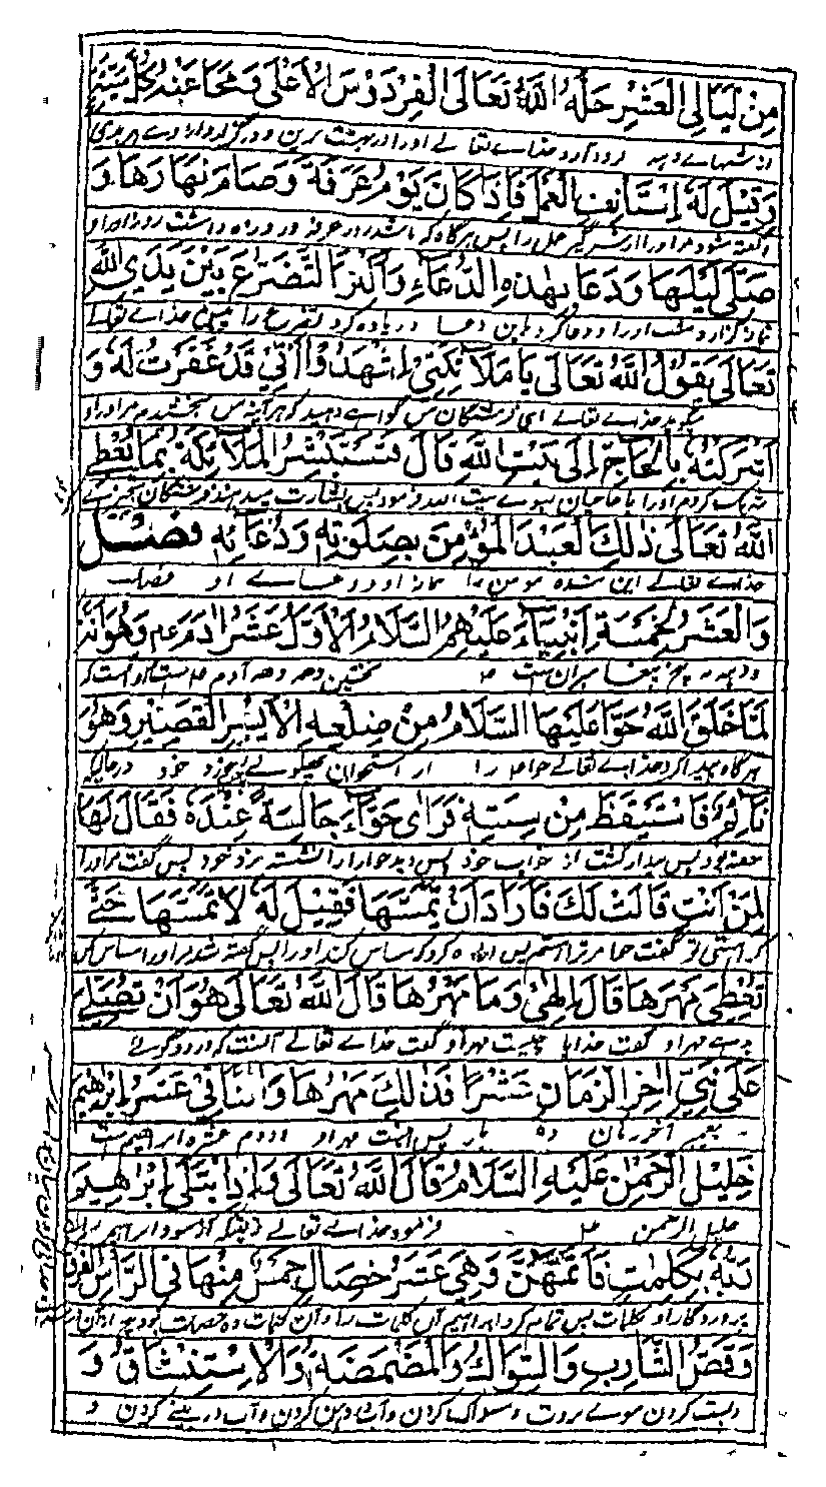 مِنْ لَيَالِي الْعَشْرِ حَلَّهُ اللَّهُ تَعَالَى الْفِرْدَوْسَ الْأَعْلَى وَمَحَا عَنْهُ كُلَّ سَيِّئَةٍ
از شبهاے دہہ فرود آرد خداے تعالے اورا در بهشت برین و درگزارد از وے هر بدی
وَقِيلَ لَهُ اسْتَأْنِفِ الْعَمَلَ فَإِذَا كَانَ يَوْمُ عَرَفَةَ وَصَامَ نَهَارَهَا وَ
و گفته شود مر اورا از سر گیر عمل را پس هرگاه که باشد روز عرفه و روزه داشت روز او را و
صَلَّى لَيْلَهَا وَدَعَا بِهَذِهِ الدُّعَاءِ وَأَكْثَرَ التَّضَرُّعَ بَيْنَ يَدَيِ اللَّهِ
نماز گزارد شب اورا و دعا کرد باین دعا و زیاده کرد تضرع را پیش خداے تعالے
تَعَالَى يَقُولُ اللَّهُ تَعَالَى يَا مَلَائِكَتِي اشْهَدُوا أَنِّي قَدْ غَفَرْتُ لَهُ وَ
میگوید خداے تعالے ای فرشتگان من گواه باشید که هرآئینه من بخشیدم مر اورا و
أَشْرَكْتُهُ بِالْحَاجِّ إِلَى بَيْتِ اللَّهِ قَالَ فَتَسْتَبْشِرُ الْمَلَائِكَةُ بِمَا يُعْطِي
شریک کردم اورا با حاجیان بسوے بیت الله فرمود پس بشارت میدهند فرشتگان بچیزے
اللَّهُ تَعَالَى ذَلِكَ الْعَبْدَ الْمُؤْمِنَ بِصَلَوٰتِهِ وَدُعَائِهِ فَصْلٌ
خداے تعالے این بنده مومن را نماز او و دعاے او فصل
وَالْعَشْرُ لِخَمْسَةِ أَنْبِيَاءَ عَلَيْهِمُ السَّلَامُ الْأَوَّلُ عَشْرُ آدَمَ عم وَهُوَ أَنَّهُ
و دہہ پنج پیغامبران ست نخستین دهه آدم است و آنست که
لَمَّا خَلَقَ اللَّهُ حَوَّا عَلَيْهَا السَّلَامُ مِنْ ضِلْعِهِ الْأَيْسَرِ الْقَصِيرِ وَهُوَ
هرگاه پیدا کرد خداے تعالے حوا را از استخوان پهلوے چپ خرد خود درحالیکه
نَائِمٌ فَاسْتَيْقَظَ مِنْ سِنَتِهِ فَرَأَى حَوَّاءَ جَالِسَةً عِنْدَهُ فَقَالَ لَهَا
خفته بود پس بیدار گشت از خواب خود پس دید حوا را نشسته نزد خود پس گفت مر اورا
لِمَنْ أَنْتِ قَالَتْ لَكَ فَأَرَادَ أَنْ يَمَسَّهَا فَقِيلَ لَهُ لَا تَمَسَّهَا حَتَّى
کراستی تو گفت حوا مر ترا هستم پس اراده کرد که مساس کند اورا پس گفته شد مر اورا مساس مکن
تُعْطِيَ مَهْرَهَا قَالَ إِلَهِي وَمَا مَهْرُهَا قَالَ اللَّهُ تَعَالَى هُوَ أَنْ تُصَلِّيَ
بدهے مهر او گفت خدایا چیست مهر او گفت خداے تعالے آنست که درود گوئے
عَلَى نَبِيِّ آخِرِ الزَّمَانِ عَشْرًا فَذَلِكَ مَهْرُهَا وَالثَّانِي عَشْرُ إِبْرَاهِيمَ
بر پیغمبر آخر زمان ده بار پس اینست مهر او و دوم عشره ابراهیم ست
خَلِيلِ الرَّحْمَنِ عَلَيْهِ السَّلَامُ قَالَ اللَّهُ تَعَالَى وَإِذِ ابْتَلَى إِبْرَاهِيمَ
خلیل الرحمن فرمود خداے تعالے وقتیکه آزمود ابراهیم را
رَبُّهُ بِكَلِمَاتٍ فَأَتَمَّهُنَّ وَهِيَ عَشْرُ خِصَالٍ خَمْسٌ مِنْهَا فِي الرَّأْسِ الْفَرْقُ
پروردگار او بکلمات پس تمام کرد ابراهیم آن کلمات را و آن کلمات ده خصلت بود پنج از آن
وَقَصُّ الشَّارِبِ وَالسِّوَاكُ وَالْمَضْمَضَةُ وَالْاِسْتِنْشَاقُ وَ
و پست کردن موے بروت و مسواک کردن و آب در دهن کردن و آب در بینی کردن و